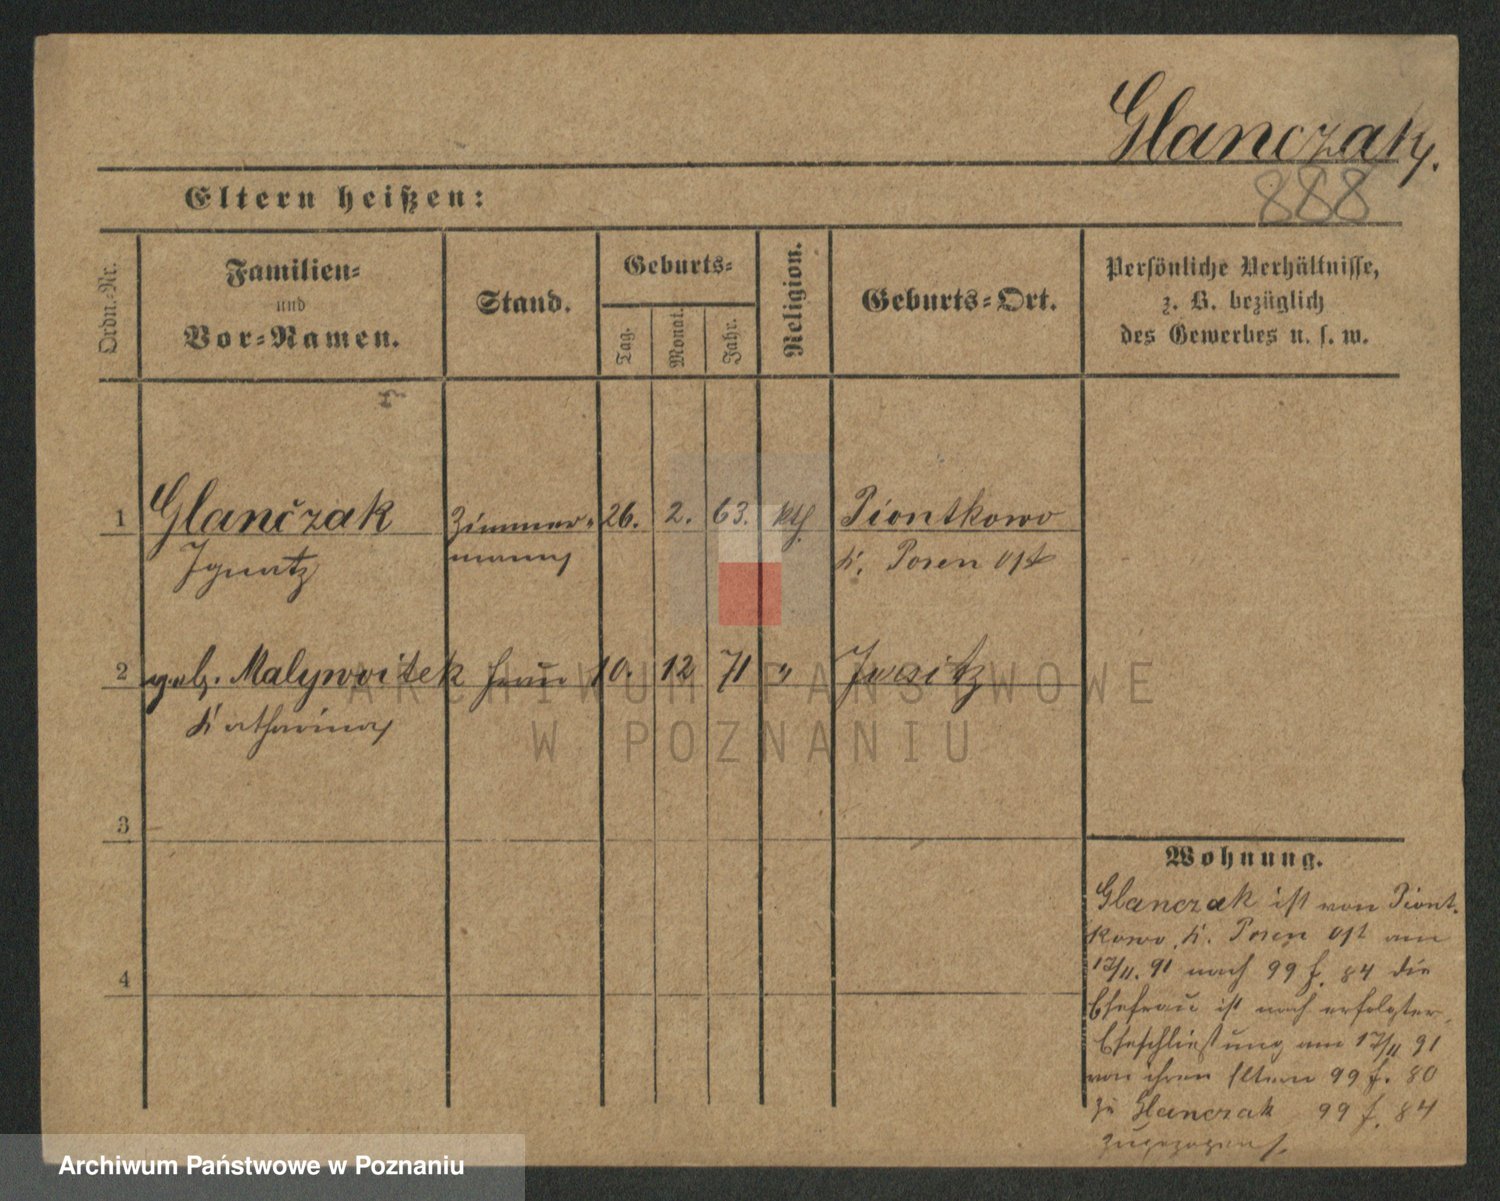 Glanczak.
888
Eltern heißen:
Ordn.-Nr.
Familien-
und
Vor-Namen.
Stand.
Geburts-
Tag.
Monat.
Jahr.
Religion.
Geburts-Ort.
Persönliche Verhältnisse,
z. B. bezüglich
des Gewerbes u. s. w.
1 Glanczak Zimmer- 26. 2. 63. kth. Piontkowo
Ignatz mann K. Posen Ost
2 geb. Malywoitek Frau 10. 12 71 " Jersitz
Katharina
3
4
Wohnung.
Glanczak ist von Piont-
kowo, K. Posen Ost am
17/11. 91 nach 99 f. 84 die
Ehefrau ist nach erfolgter
Eheschließung am 17/11 91
von ihren Eltern 99 f. 80
zu Glanczak 99 f. 84
zugezogen.
ARCHIWUM PAŃSTWOWE
W POZNANIU
Archiwum Państwowe w Poznaniu